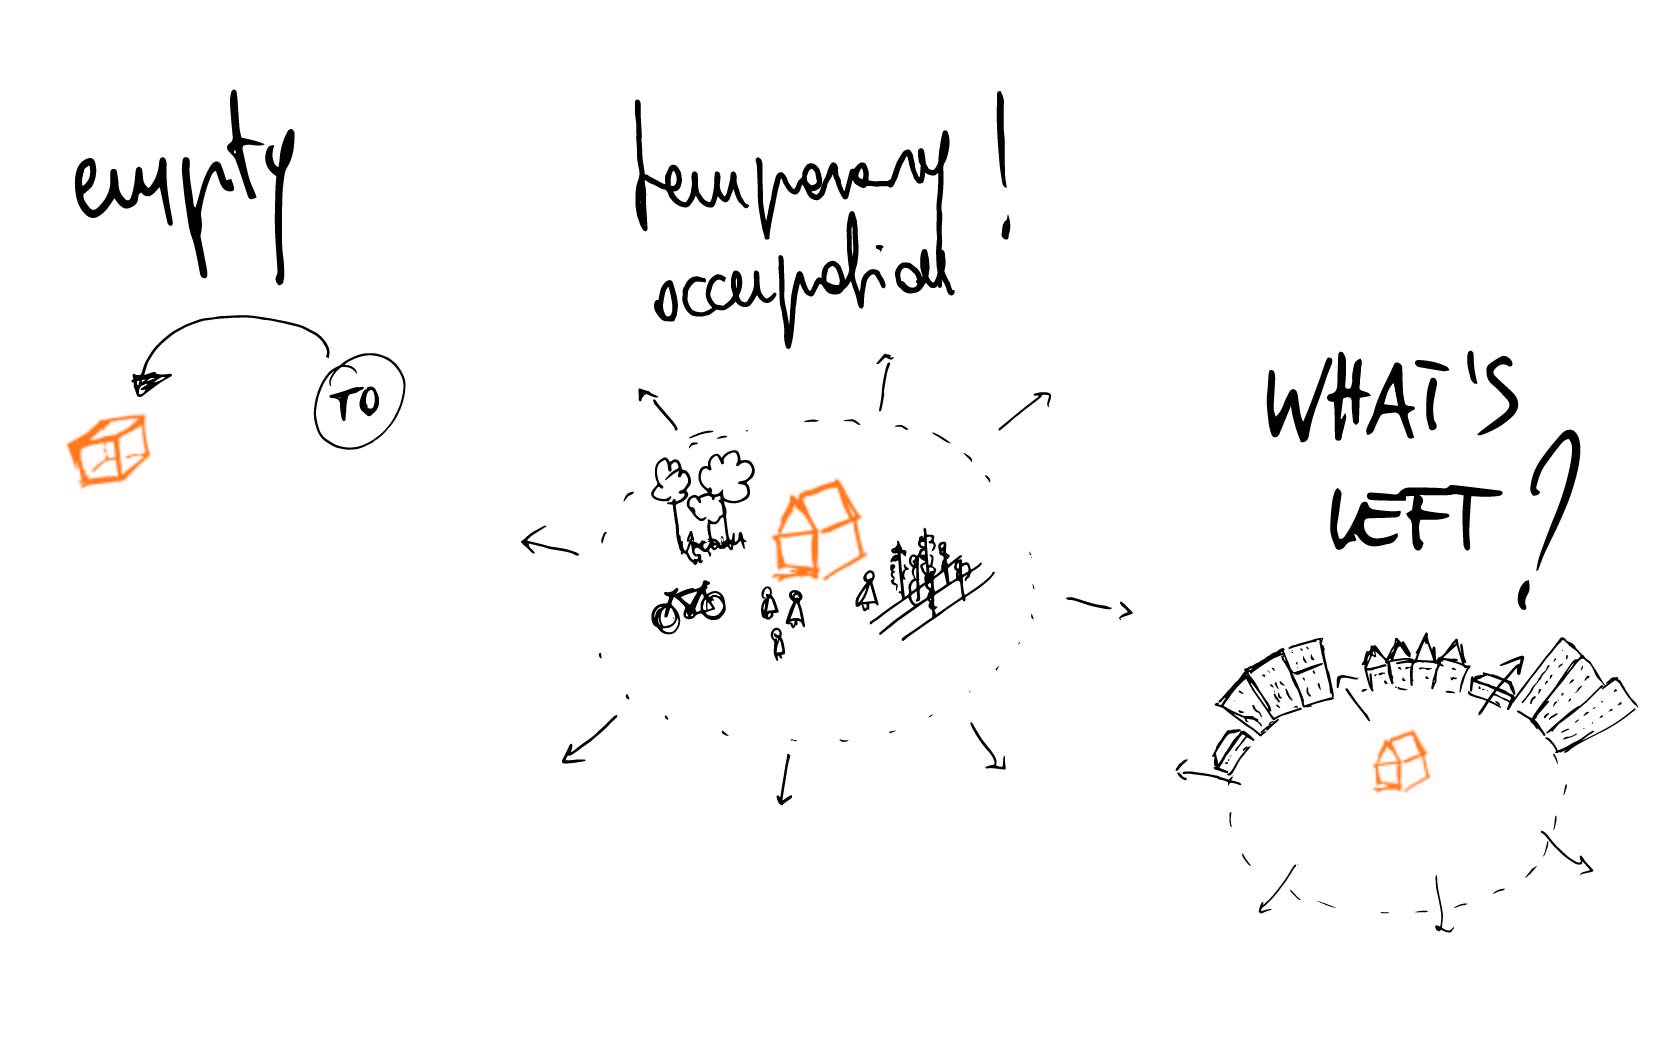 empty
TO
temporary!
occupation
WHAT'S
LEFT?